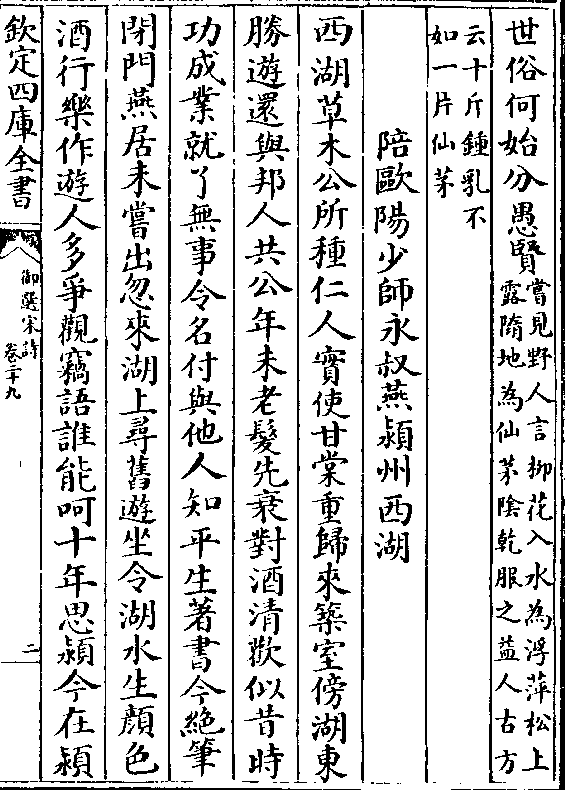 世俗何始分愚賢嘗見野人言栁花入水為浮萍松上
露隋地為仙茅陰乾服之益人古方
云十斤鍾乳不
如一片仙茅
陪歐陽少師永叔燕潁州西湖
西湖草木公所種仁人實使甘棠重歸來築室傍湖東
勝遊還與邦人共公年未老髮先衰對酒清歡似昔時
功成業就了無事令名付與他人知平生著書今絶筆
閉門燕居未嘗出忽來湖上尋舊遊坐令湖水生顔色
酒行樂作遊人多爭觀竊語誰能呵十年思潁今在潁
欽定四庫全書
御選宋詩
卷三十九
二